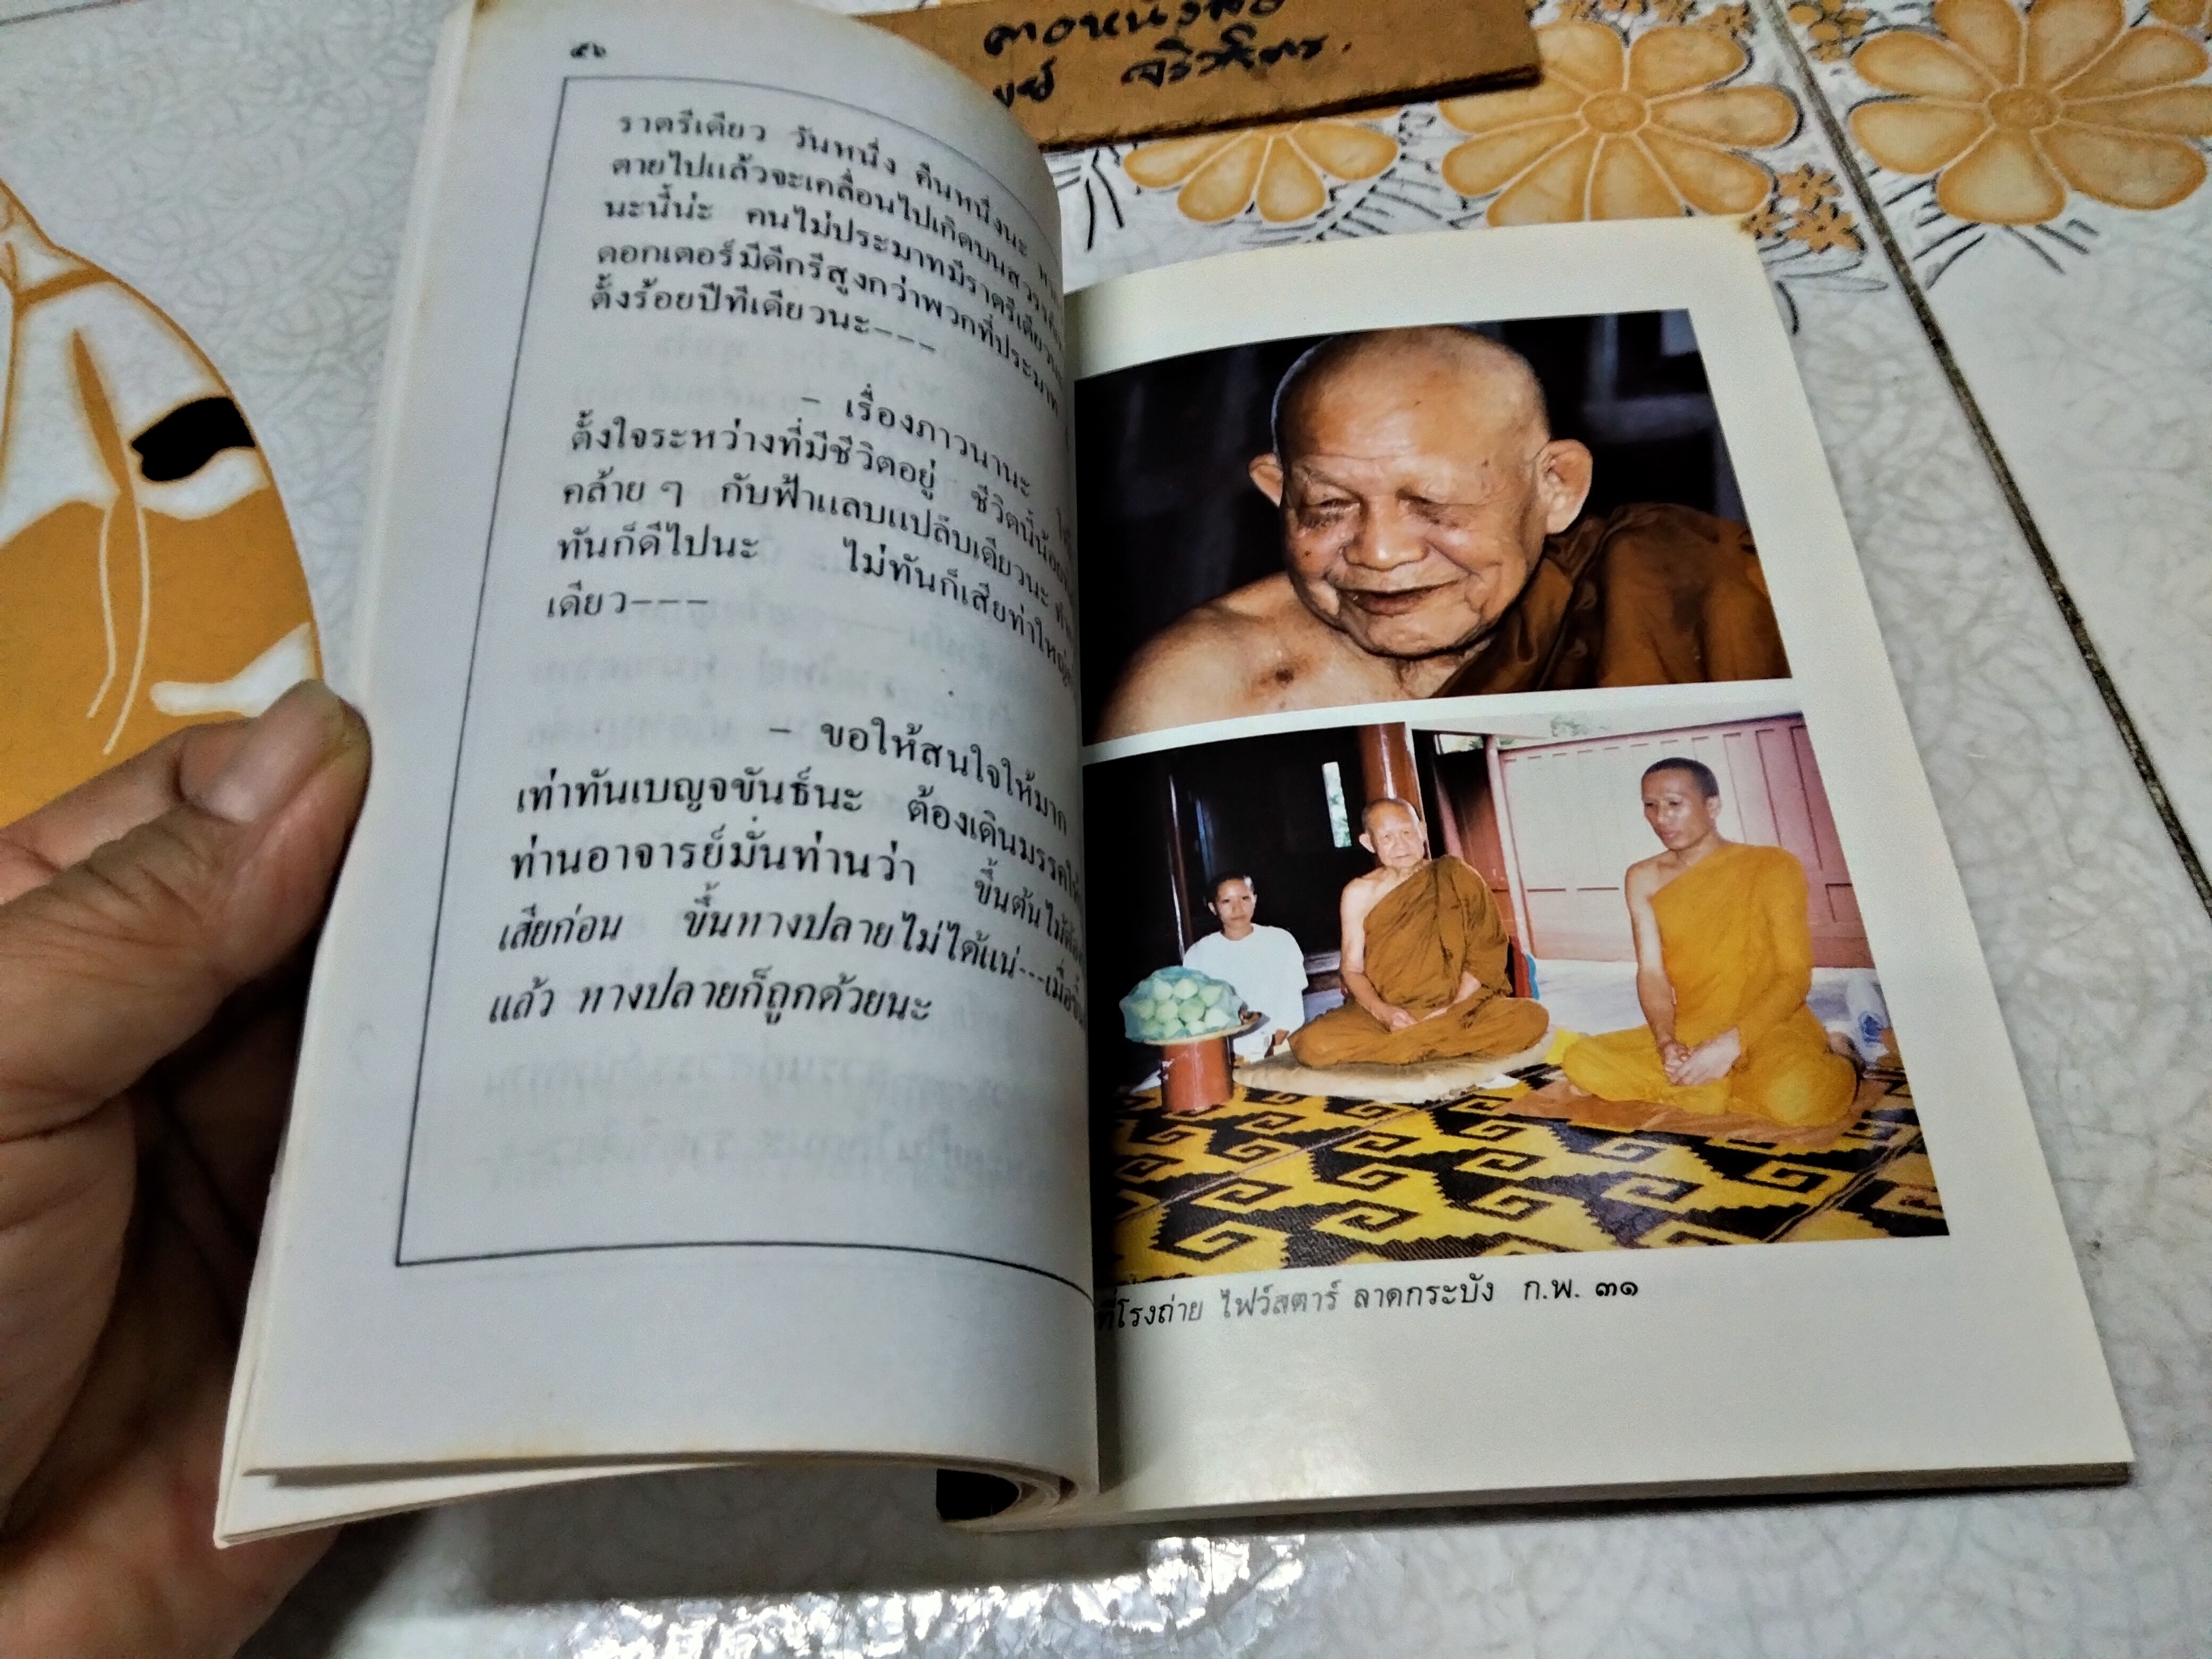 คอหนังสือ
๕๖
ราตรีเดียว วันหนึ่ง คืนหนึ่งนะ
ตายไปแล้วจะเคลื่อนไปเกิดบนสวรรค์
นะนี้น่ะ คนไม่ประมาทมีราตรีเดียว
ดอกเตอร์มีดีกรีสูงกว่าพวกที่ประมาท
ตั้งร้อยปีทีเดียวนะ---
- เรื่องภาวนานะ
ตั้งใจระหว่างที่มีชีวิตอยู่ ชีวิตนี้น้อย
คล้าย ๆ กับฟ้าแลบแปล๊บเดียวนะ
ทันก็ดีไปนะ ไม่ทันก็เสียท่าใหญ่
เดียว---
- ขอให้สนใจให้มาก
เท่าทันเบญจขันธ์นะ ต้องเดินมรรค
ท่านอาจารย์มั่นท่านว่า ขึ้นต้นไม้ต้อง
เสียก่อน ขึ้นทางปลายไม่ได้แน่---เมื่อ
แล้ว ทางปลายก็ถูกด้วยนะ
ที่โรงถ่าย ไฟว์สตาร์ ลาดกระบัง ก.พ. ๓๑